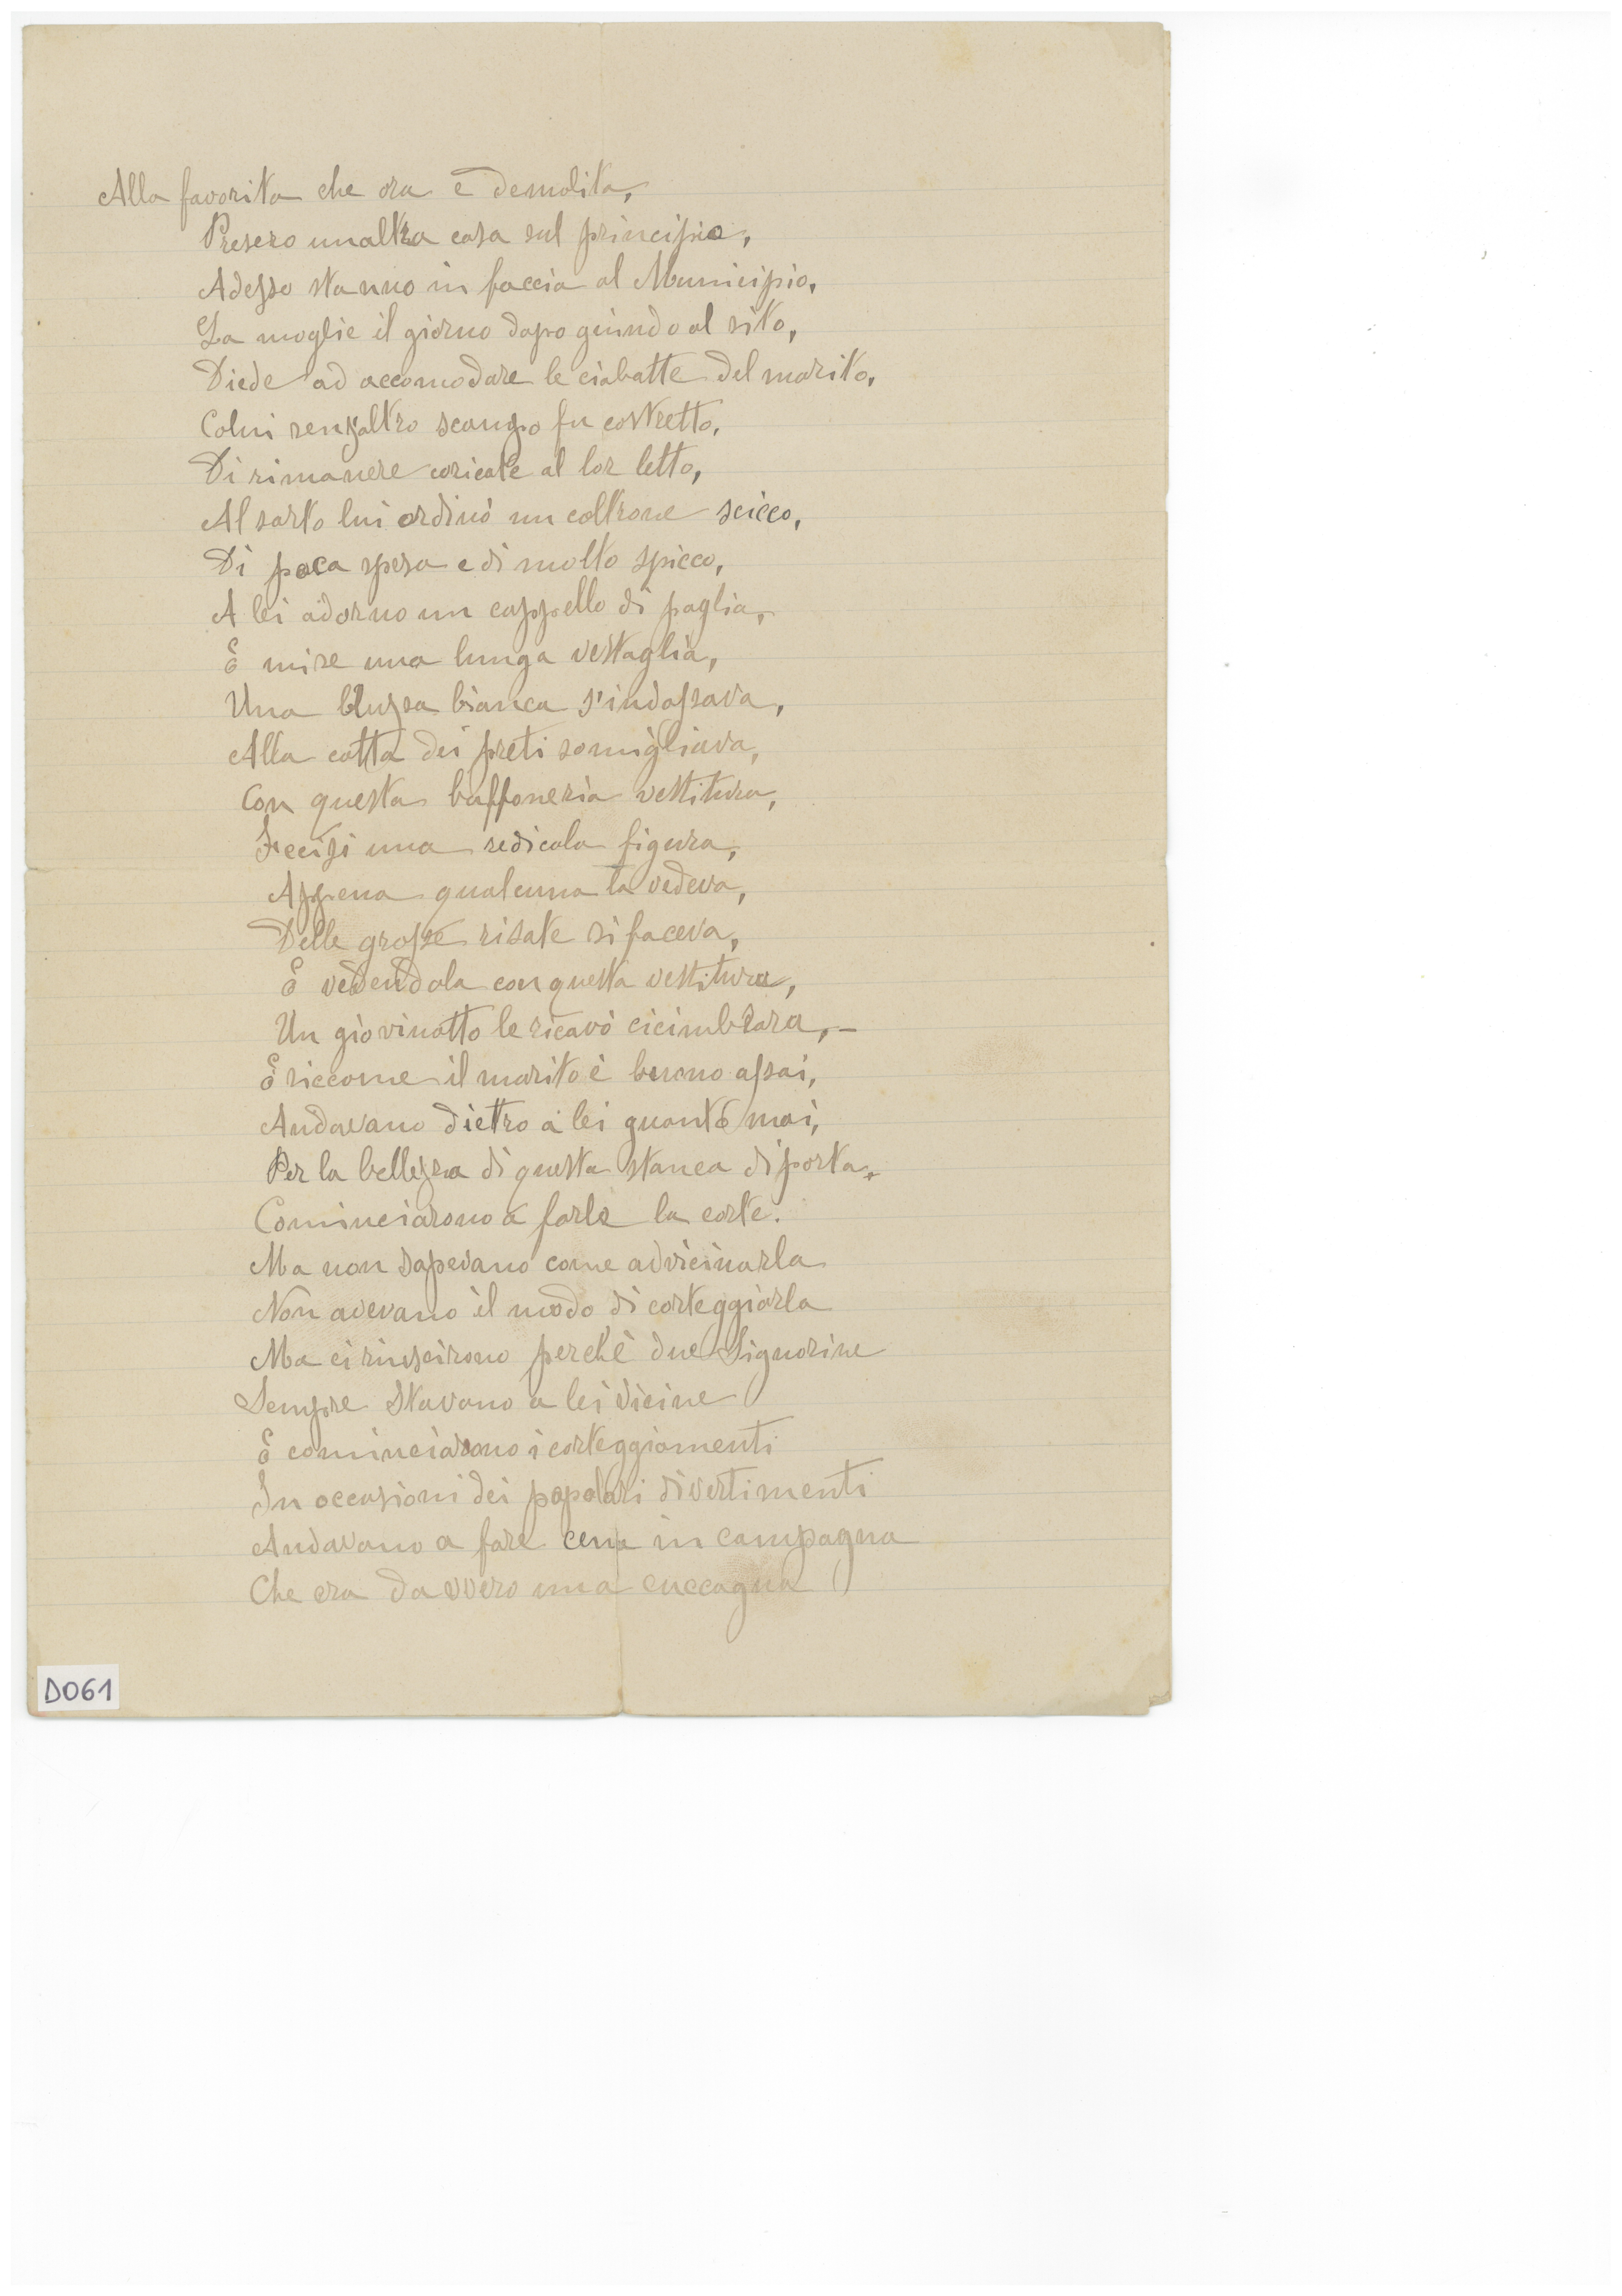 Alla favorita che ora è demolita,
Presero unaltra casa sul principio,
Adesso stanno in faccia al Municipio,
La moglie il giorno dopo guindo al sito,
Diede ad accomodare le ciabatte del marito,
Colui senzaltro scampo fu costretto,
Di rimanere coricate al lor letto,
Al sarto lui ordinò un coltrone scicco,
Di poca spesa e di molto spicco,
A lei adorno un cappello di paglia,
E mise una lunga vestaglia,
Una bluzsa bianca s'indossava,
Alla cotta dei preti somigliava,
Con questa buffoneria vestitura,
Fecisi una redicola figura,
Appena qualcuna la vedeva,
Delle grosse risate si faceva,
E vedendola con questa vestitura,
Un giovinotto le ricavò cicimbrara, –
E siccome il marito è buono assai,
Andavano dietro a lei quanto mai,
Per la bellezza di questa stanca di porta,
Cominciarono a farle la corte.
Ma non sapevano come advicinarla
Non avevano il modo di corteggiarla
Ma ci riuscirono perchè due Signorine
Sempre stavano a lei vicine
E cominciarono i corteggiamenti
In occasioni dei popolari divertimenti
Andavano a fare cena in campagna
Che era davvero una cuccagna
D061